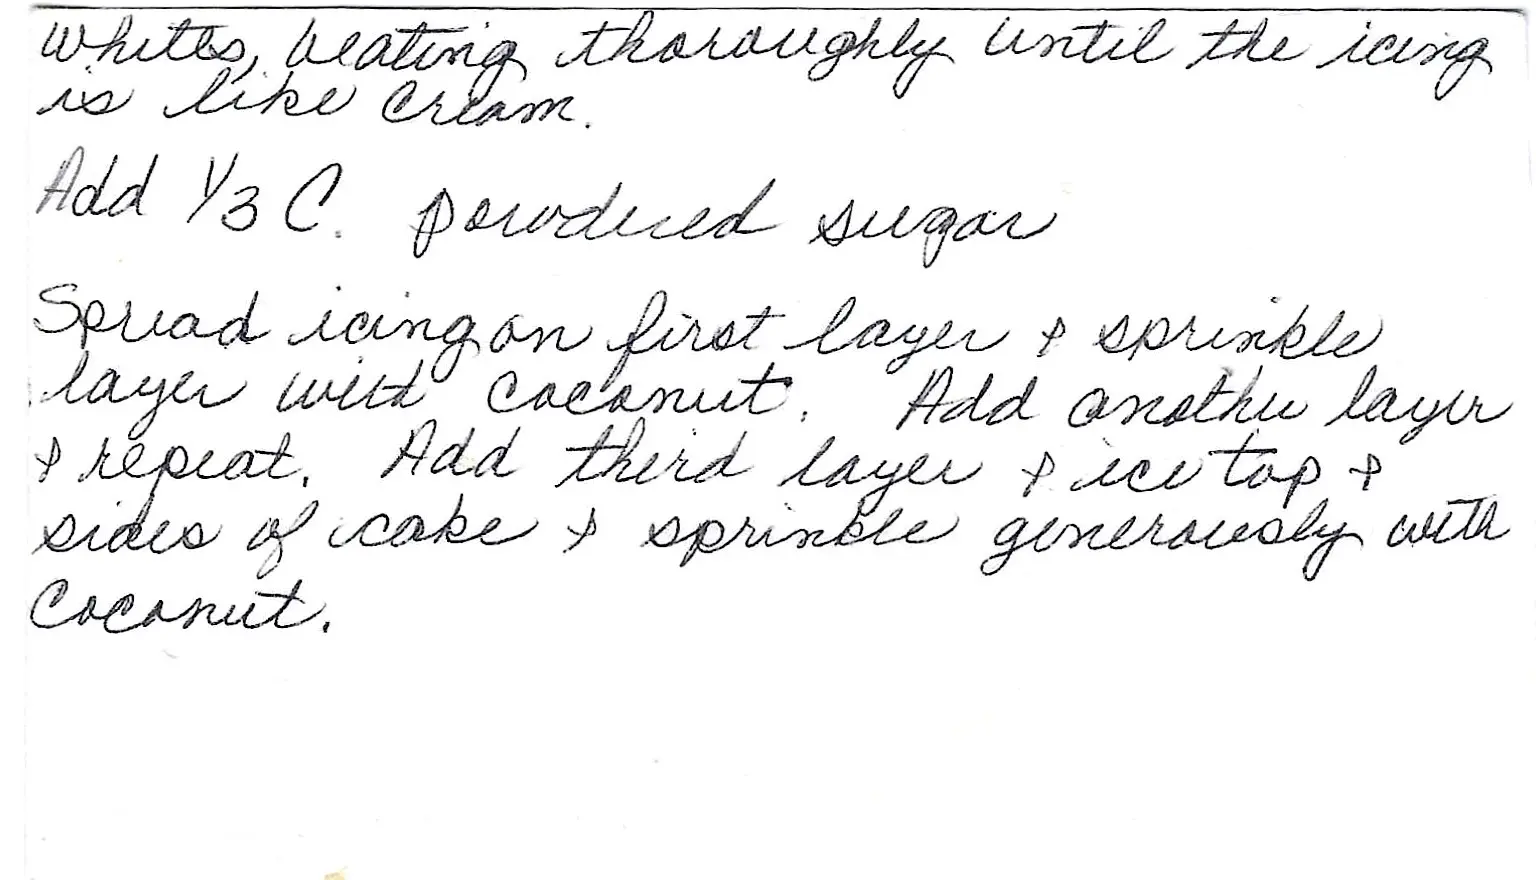 whites, beating thoroughly until the icing
is like cream.
Add 1/3 C. powdered sugar
Spread icing on first layer & sprinkle
layer with coconut. Add another layer
& repeat. Add third layer & ice top &
sides of cake & sprinkle generously with
coconut.